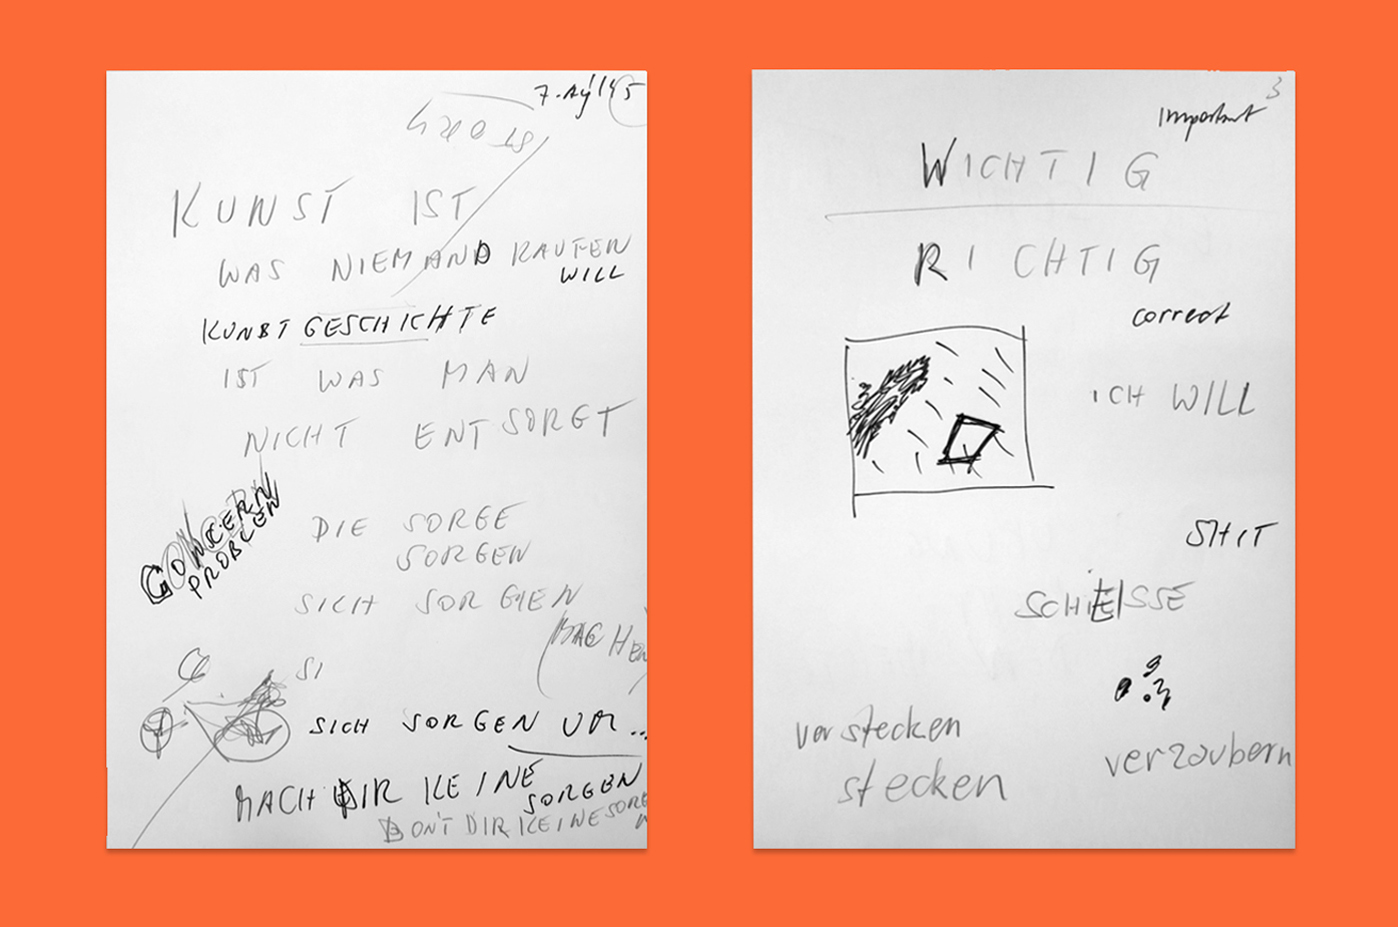 KUNST IST
WAS NIEMAND KAUFEN
WILL
KUNST GESCHICHTE
IST WAS MAN
NICHT ENTSORGT
CONCERN
PROBLEM
DIE SORGE
SORGEN
SICH SORGEN
SI
SICH SORGEN UM...
MACH DIR KEINE
SORGEN
DON'T DIR KEINE SORG
3
important
WICHTIG
RICHTIG
correct
ICH WILL
SHIT
SCHEISSE
verstecken
stecken
verzaubern